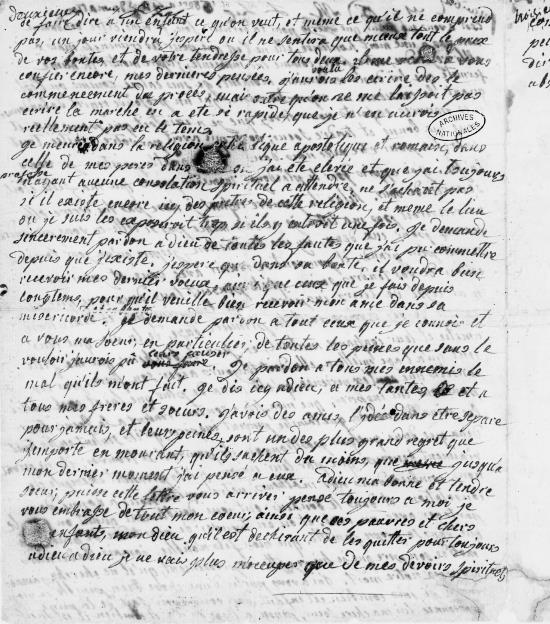 de faire dire a un enfant ce qu'on veut, et même ce qu'il ne comprend
pas, un jour viendra j'espere ou il ne sentira que mieux tout le prix
de vos bontés et de votre tendresse pour tous deux. il me reste a vous
voulu
confier encore, mes dernieres pensées, j'aurois les ecrire des le
commencement du procès, mais outre qu'on ne me laissoit pas
ecrire la marche en a été si rapide, que je n'en aurois
reellement pas eu le tems.
ARCHIVES
NATIONALES
je meurs dans la religion catholique apostolique et romaine, dans
celle de mes peres, dans où j'ai été elevée et que j'ai toujours
professée
n'ayant aucune consolation spirituel a attendre, ne sachant pas
si il existe encore ici des prêtres de cette religion, et même le lieu
ou je suis les exposeroit trop si ils y entroit une fois, je demande
sincerement pardon a Dieu de toutes les fautes que j'ai pu commettre
depuis que j'existe, j'espere que dans sa bonté, il voudra bien
recevoir mes dernier voeux, ainsi que ceux que je fais depuis
longtems, pour qu'il veuille bien recevoir mon ame dans sa
misericorde je demande pardon a tout ceux que je connois et
a vous ma soeur, en particulier, de toutes les peines que sans le
vouloir j'aurois pu leurs causer je pardonne a tous mes ennemis le
mal qu'ils m'ont fait. je dis ici adieu, a mes tantes et a
tous mes freres et soeurs, j'avois des amis, l'idée d'en être separée
pour jamais, et leur peines, sont un des plus grand regret que
j'emporte en mourant, qu'ils sachent du moins, que jusqu'a
mon dernier moment j'ai pensé a eux. Adieu ma bonne et tendre
soeur, puisse cette lettre vous arriver, pensé toujours a moi, je
vous embrasse de tout mon coeur, ainsi que ces pauvres et chers
enfants, mon dieu, qu'il est dechirant de les quitter pour toujours
adieu adieu, je ne vais plus m'occuper que de mes devoirs spirituels